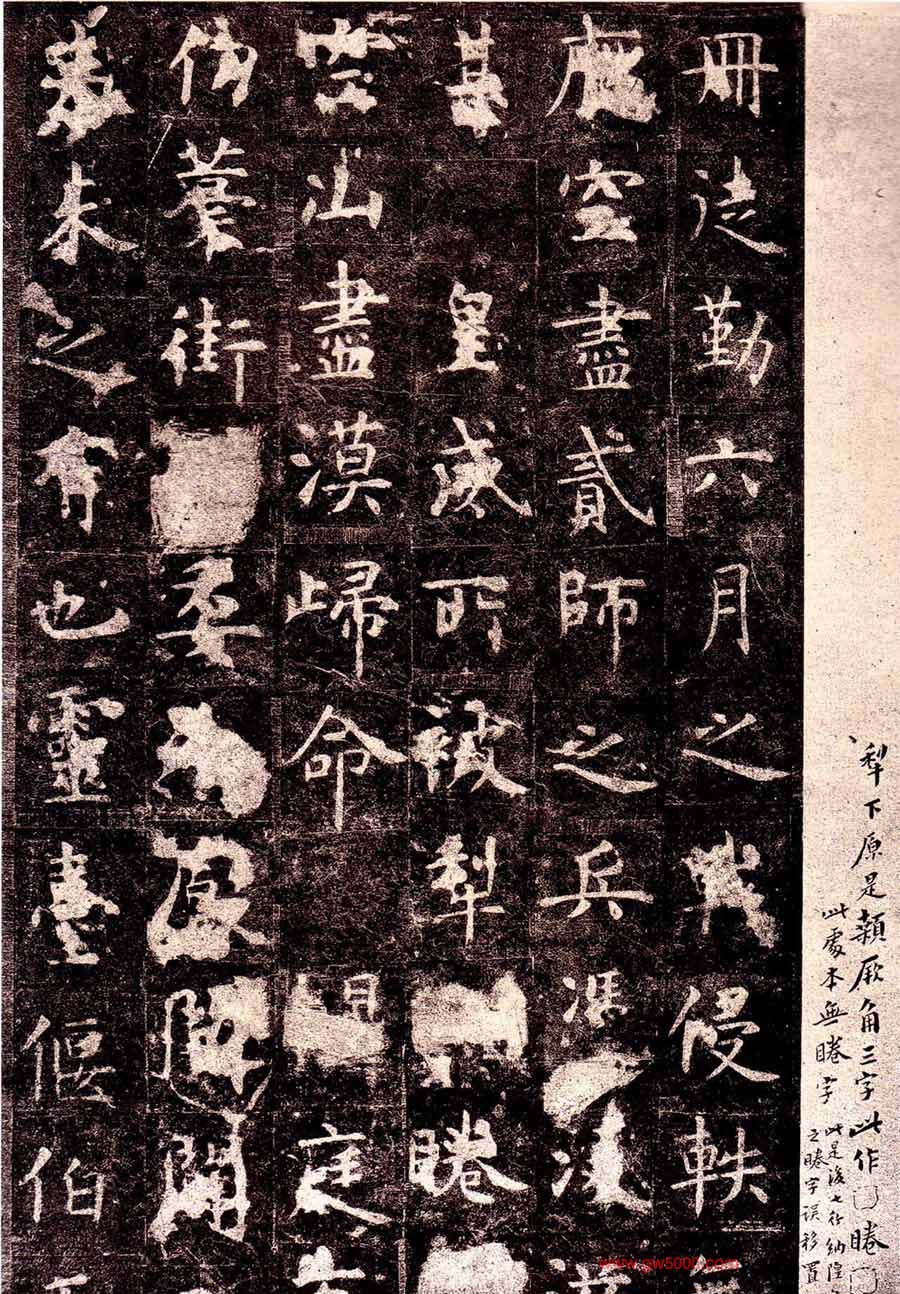 冊徒勤六月之戰侵軼無
厭空盡貳師之兵馮凌滋
甚 皇威所被犁睠
空山盡漠歸命 庭充
仞藁街委闢
未之有也靈臺偃伯
犁下原是顙厥角三字此作□睠□
此處本無睠字
此是後七行納隍
之睠字誤移置
www.gw5000.com